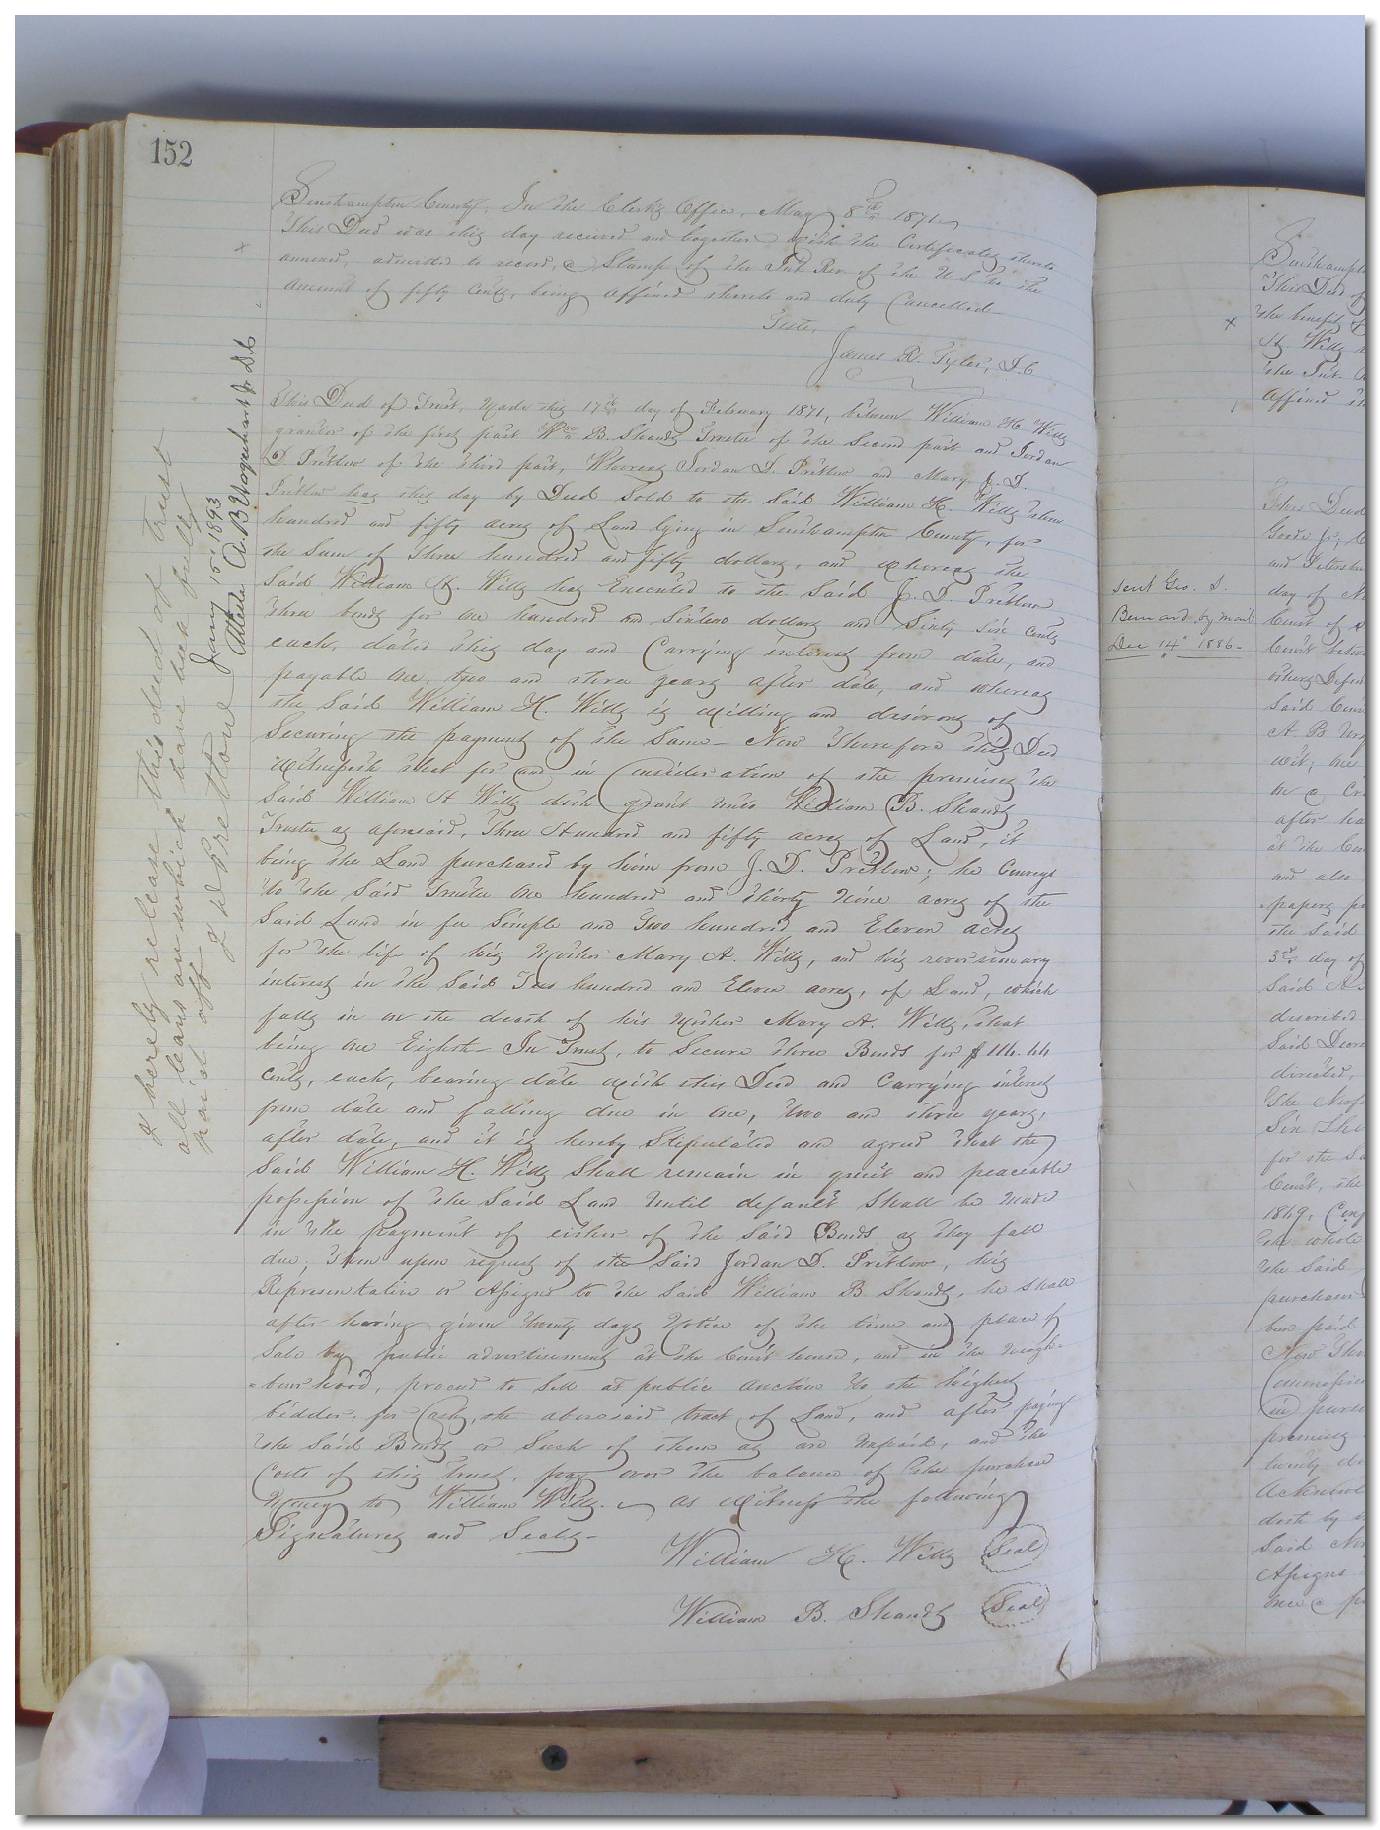 152
Southampton County. In the Clerks Office, May 8th 1871.
This Deed was this day received and together with the Certificates thereto
annexed, admitted to record, a Stamp of the Int Rev of the U S to the
amount of fifty cents, being affixed thereto and duly Cancelled
Teste,
James R. Tyler, D.C
This Deed of Trust, Made this 17th day of February 1871, between William H. Wills
grantor of the first part Wm B. Shands Trustee of the Second part and Jordan
D. Pretlow of the third part, Whereas Jordan D. Pretlow and Mary J. D.
Pretlow has this day by Deed Sold to the Said William H. Wills three
hundred and fifty acres of Land lying in Southampton County, for
the Sum of three hundred and fifty dollars, and whereas the
Said William H. Wills has Executed to the Said J. D. Pretlow
three bonds for one hundred and Sixteen dollars and Sixty Six cents
each, dated this day and Carrying interest from date, and
payable one, two and three years after date, and whereas
the Said William H. Wills is willing and desirous of
Securing the payment of the Same - Now Therefore this Deed
witnesseth that for and in Consideration of the premises the
Said William H Wills doth grant unto William B. Shands
Trustee as aforesaid, Three Hundred and fifty acres of Land, it
being the Land purchased by him from J. D. Pretlow; he Conveys
to the Said Trustee One hundred and thirty Nine acres of the
Said Land in fee Simple and Two hundred and Eleven acres
for the life of his Mother Mary A. Wills, and his reversionary
interest in the Said Two hundred and Eleven acres, of Land, which
falls in on the death of his Mother Mary A. Wills, that
being one Eighth - In Trust, to Secure three Bonds for $116.66
Cents, each, bearing date with this Deed and Carrying interest
from date and falling due in one, two and three years,
after date, and it is hereby Stipulated and agreed that the
Said William H. Wills Shall remain in quiet and peaceable
possession of the Said Land until default Shall be made
in the payment of either of the Said Bonds as they fall
due, Then upon request of the Said Jordan D. Pretlow, his
Representative or Assigns to the Said William B Shands, he shall
after having given twenty days Notice of the time and place of
Sale by public advertisement at the Court house, and in the Neigh-
-bourhood, proceed to Sell at public auction to the highest
bidder for Cash, the aforesaid tract of Land, and after paying
the Said Bonds or Such of them as are unpaid, and the
Costs of this trust, pay over the balance of the purchase
Money to William Wills. As witness the following
Signatures and Seals -
William H. Wills Seal
William B. Shands Seal
I hereby release this deed of trust
all leans on which have been fully
paid off
J D Pretlow
Jany 15, 1893
Atteste A. B Urquhart Jr D.C
Sent Geo. S.
Bernard by mail
Dec 14" 1886-
Southampt
This Deed of
the benefit
H. Wills
the Int.
affixed
This Deed
Goode Jr,
and Petersbu
day of
Court of
Court
others Defen
Said Cou
A B Ur
wit; one
on a Cr
after ha
at the Cou
and also
papers pa
the Said
3rd day of
Said
described
Said Decr
directed,
the
Six
for the Sa
Court, the
1869, Conf
the whole
the Said
purchase
been paid
Now Ther
Commissio
in pursu
premises
twenty
Acknowl
doth by
Said
Assigns
one